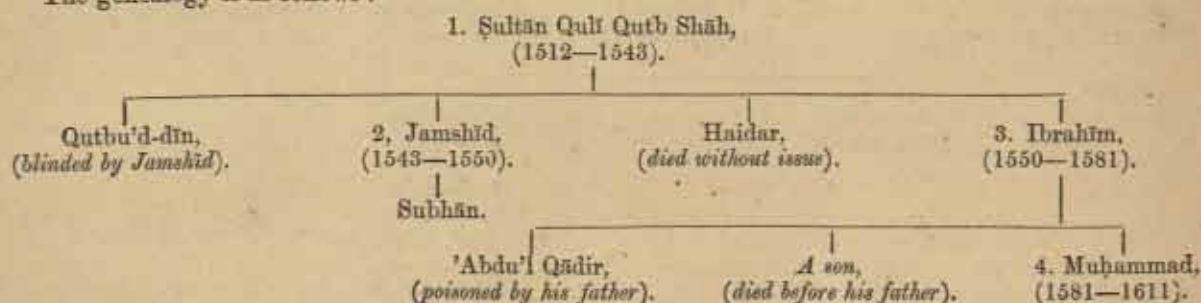 The genealogy is as follows :—
1. Ṣultān Qulī Qutb Shāh,
(1512—1543).
Qutbu'd-dīn,
(blinded by Jamshīd).
2, Jamshīd,
(1543—1550).
Subhān.
Haidar,
(died without issue).
3. Ibrahīm,
(1550—1581).
'Abdu'l Qādir,
(poisoned by his father).
A son,
(died before his father).
4. Muḥammad,
(1581—1611).